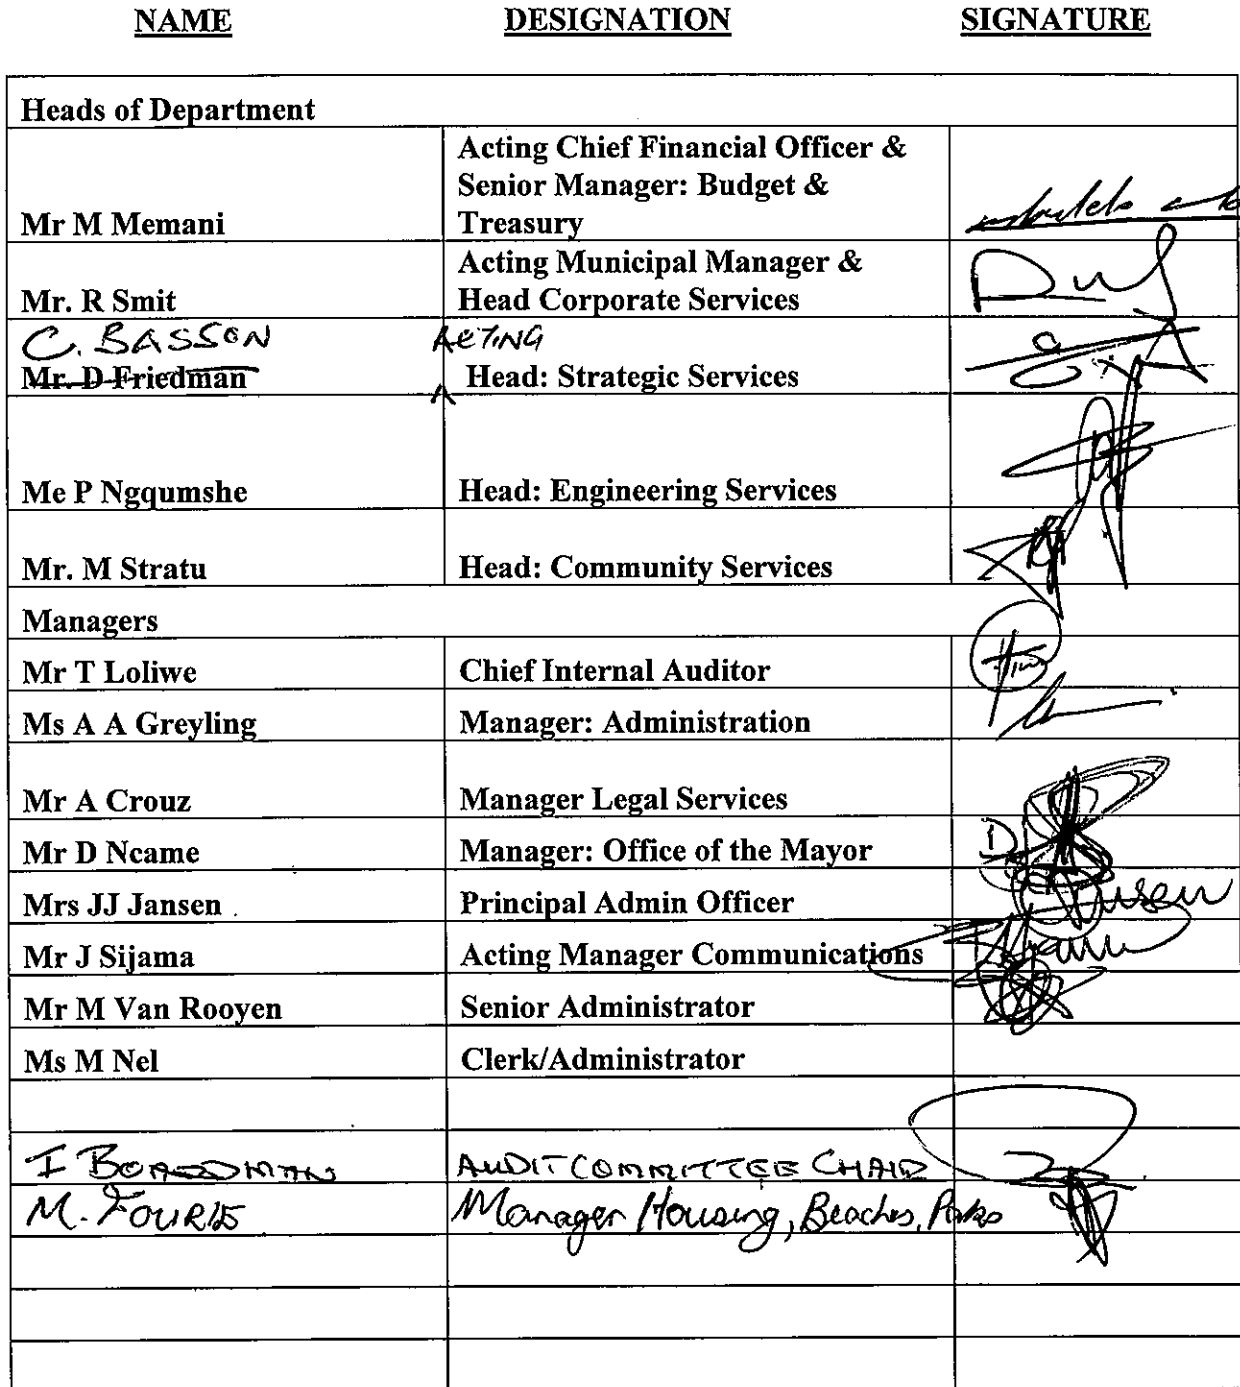 NAME DESIGNATION SIGNATURE
Heads of Department
Acting Chief Financial Officer &
Senior Manager: Budget &
Mr M Memani Treasury
Acting Municipal Manager &
Mr. R Smit Head Corporate Services
C. BASSON ACTING
Mr. D Friedman Head: Strategic Services
Me P Ngqumshe Head: Engineering Services
Mr. M Stratu Head: Community Services
Managers
Mr T Loliwe Chief Internal Auditor
Ms A A Greyling Manager: Administration
Mr A Crouz Manager Legal Services
Mr D Ncame Manager: Office of the Mayor
Mrs JJ Jansen Principal Admin Officer
Mr J Sijama Acting Manager Communications
Mr M Van Rooyen Senior Administrator
Ms M Nel Clerk/Administrator
I BOARDMAN AUDIT COMMITTEE CHAIR
M. FOURIE Manager Housing, Beaches, Parks